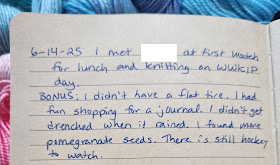 6-14-25 I met at first watch
for lunch and knitting on WWKIP
day.
BONUS: I didn't have a flat tire. I had
fun shopping for a journal. I didn't get
drenched when it rained. I found more
pomegranate seeds. There is still hockey
to watch.